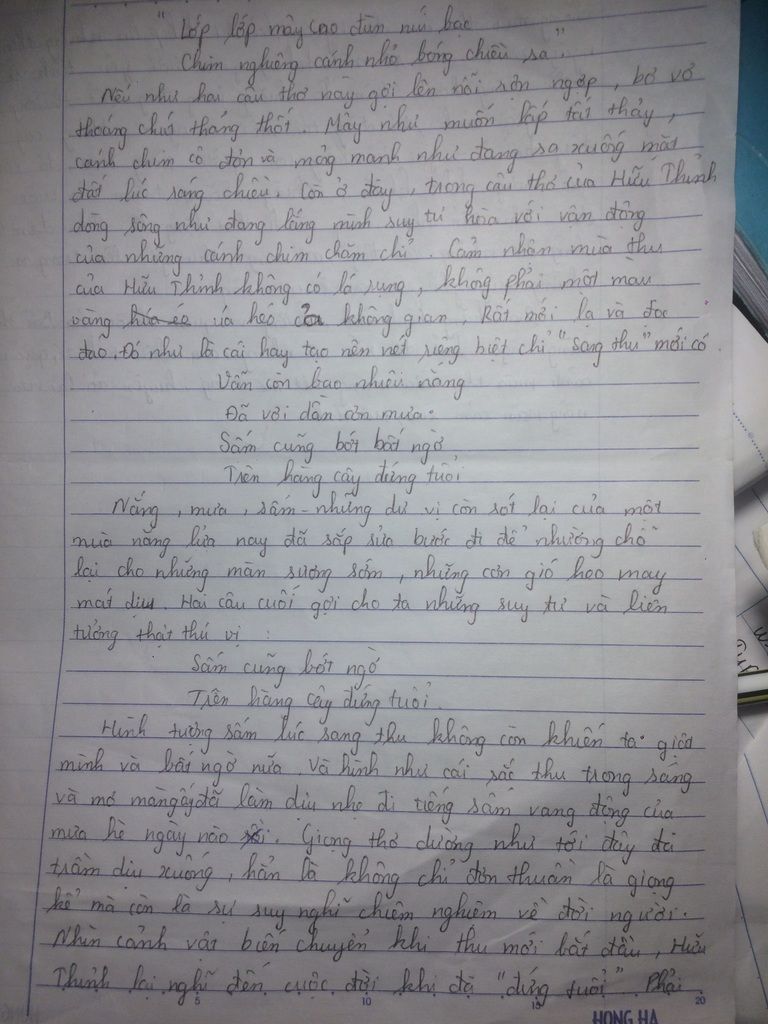 "Lớp lớp mây cao đùn núi bạc
Chim nghiêng cánh nhỏ bóng chiều sa"
Nếu như hai câu thơ này gợi lên nỗi rợn ngợp, bơ vơ
thoáng chút thảng thốt. Mây như muốn lấp tất thảy,
cánh chim cô đơn và mỏng manh như đang sa xuống mặt
đất lúc sáng chiều. Còn ở đây, trong câu thơ của Hữu Thỉnh
dòng sông như đang lắng mình suy tư hòa với vận động
của những cánh chim chăm chỉ. Cảm nhận mùa thu
của Hữu Thỉnh không có lá rụng, không phải một màu
vàng úa héo của không gian, Rất mới lạ và độc
đáo. Đó như là cái hay tạo nên nét riêng biệt chỉ "sang thu" mới có.
Vẫn còn bao nhiêu nắng
Đã vơi dần cơn mưa.
Sấm cũng bớt bất ngờ
Trên hàng cây đứng tuổi
Nắng, mưa, sấm - những dư vị còn sót lại của một
mùa nắng lửa nay đã sắp sửa bước đi để nhường chỗ
lại cho những màn sương sớm, những cơn gió heo may
mát dịu. Hai câu cuối gợi cho ta những suy tư và liên
tưởng thật thú vị :
Sấm cũng bớt ngờ
Trên hàng cây đứng tuổi.
Hình tượng sấm lúc sang thu không còn khiến ta giật
mình và bất ngờ nữa. Và hình như cái sắc thu trong sáng
và mơ màng ấy đã làm dịu nhẹ đi tiếng sấm vang động của
mưa hè ngày nào. Giọng thơ dường như tới đây đã
trầm dịu xuống, hẳn là không chỉ đơn thuần là giọng
kể mà còn là sự suy nghĩ chiêm nghiệm về đời người.
Nhìn cảnh vật biến chuyển khi thu mới bắt đầu, Hữu
Thỉnh lại nghĩ đến cuộc đời khi đã "đứng tuổi" Phải
5 10 15 20
HONG HA